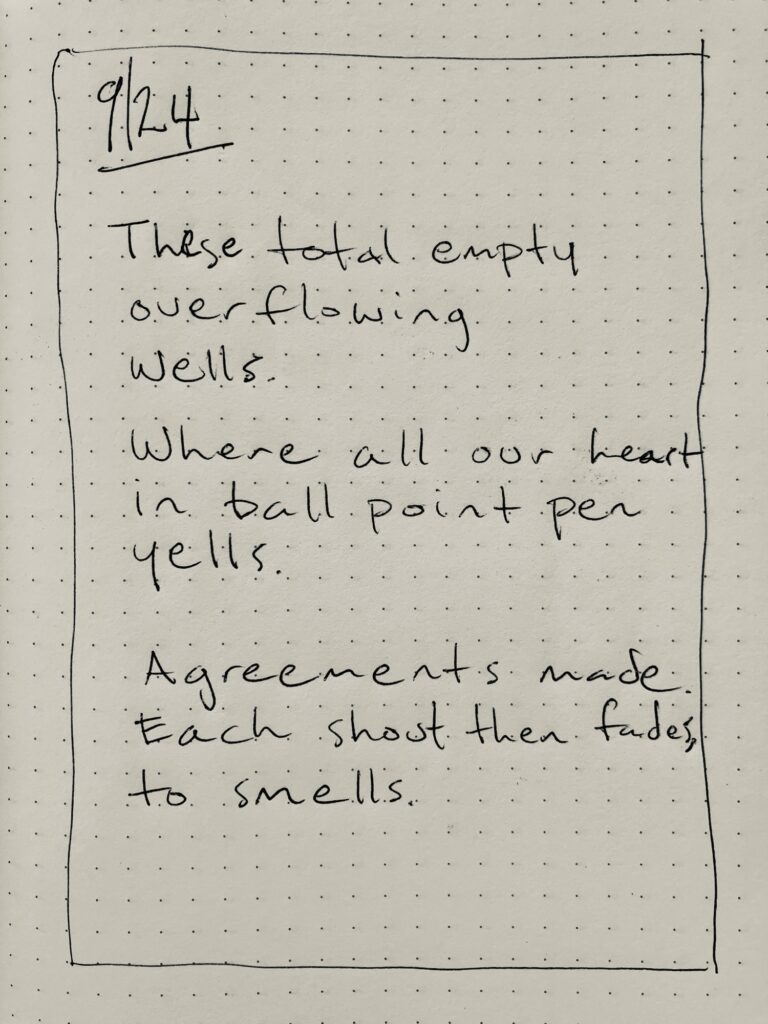 9/24
These total empty
overflowing
wells.
Where all our heart
in ball point pen
yells.
Agreements made.
Each shout then fades,
to smells.